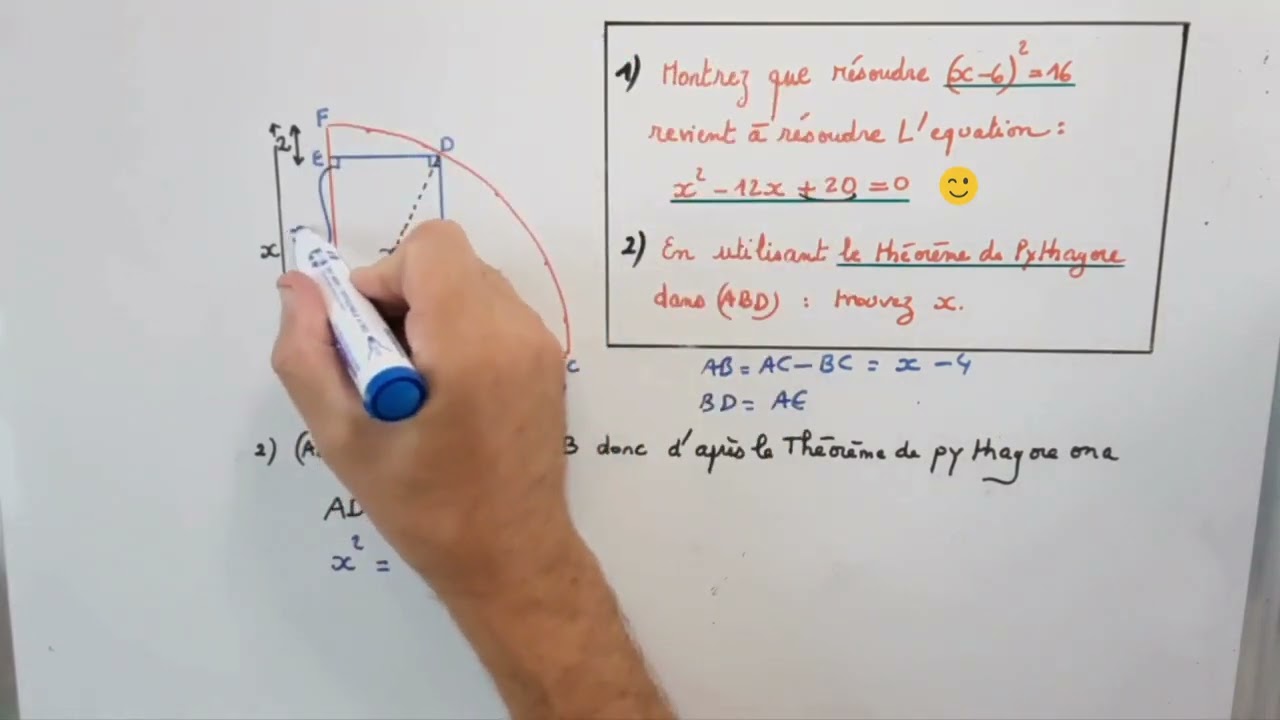 1) Montrez que résoudre (x-6)² = 16
revient à résoudre L'equation :
x² - 12x + 20 = 0
2) En utilisant le théorème de Pythagore
dans (ABD) : trouvez x.
F
2
E
D
x
x
C
AB = AC - BC = x - 4
BD = AE
2) (A B donc d'après le Théorème de pythagore on a
AD
x² =